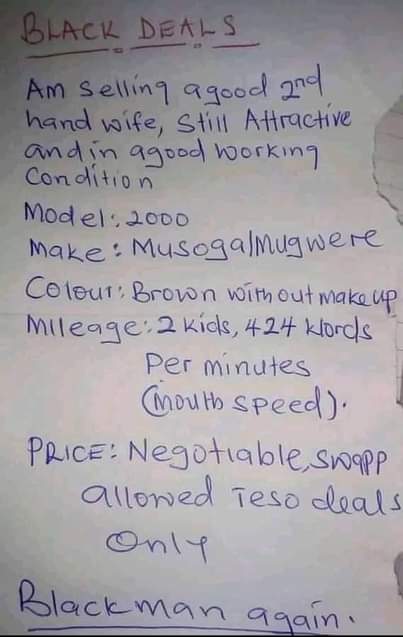 BLACK DEALS
Am selling agood 2nd
hand wife, still Attractive
and in agood working
Condition
Model: 2000
Make: Musoga/Mugwere
Colour: Brown without make up
Mileage: 2 kids, 424 Words
Per minutes
(mouth speed).
PRICE: Negotiable, swapp
allowed Teso deals
Only
Blackman again.